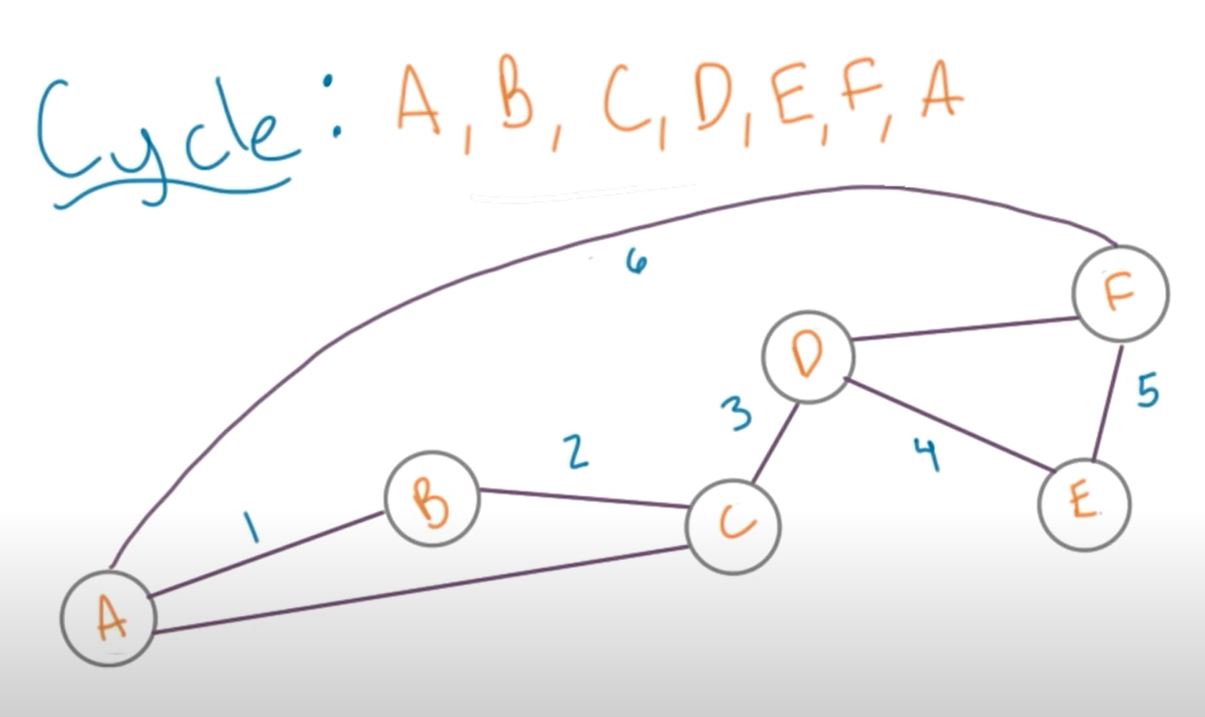 Cycle: A, B, C, D, E, F, A
6
F
D
5
3
4
2
B
E
C
1
A